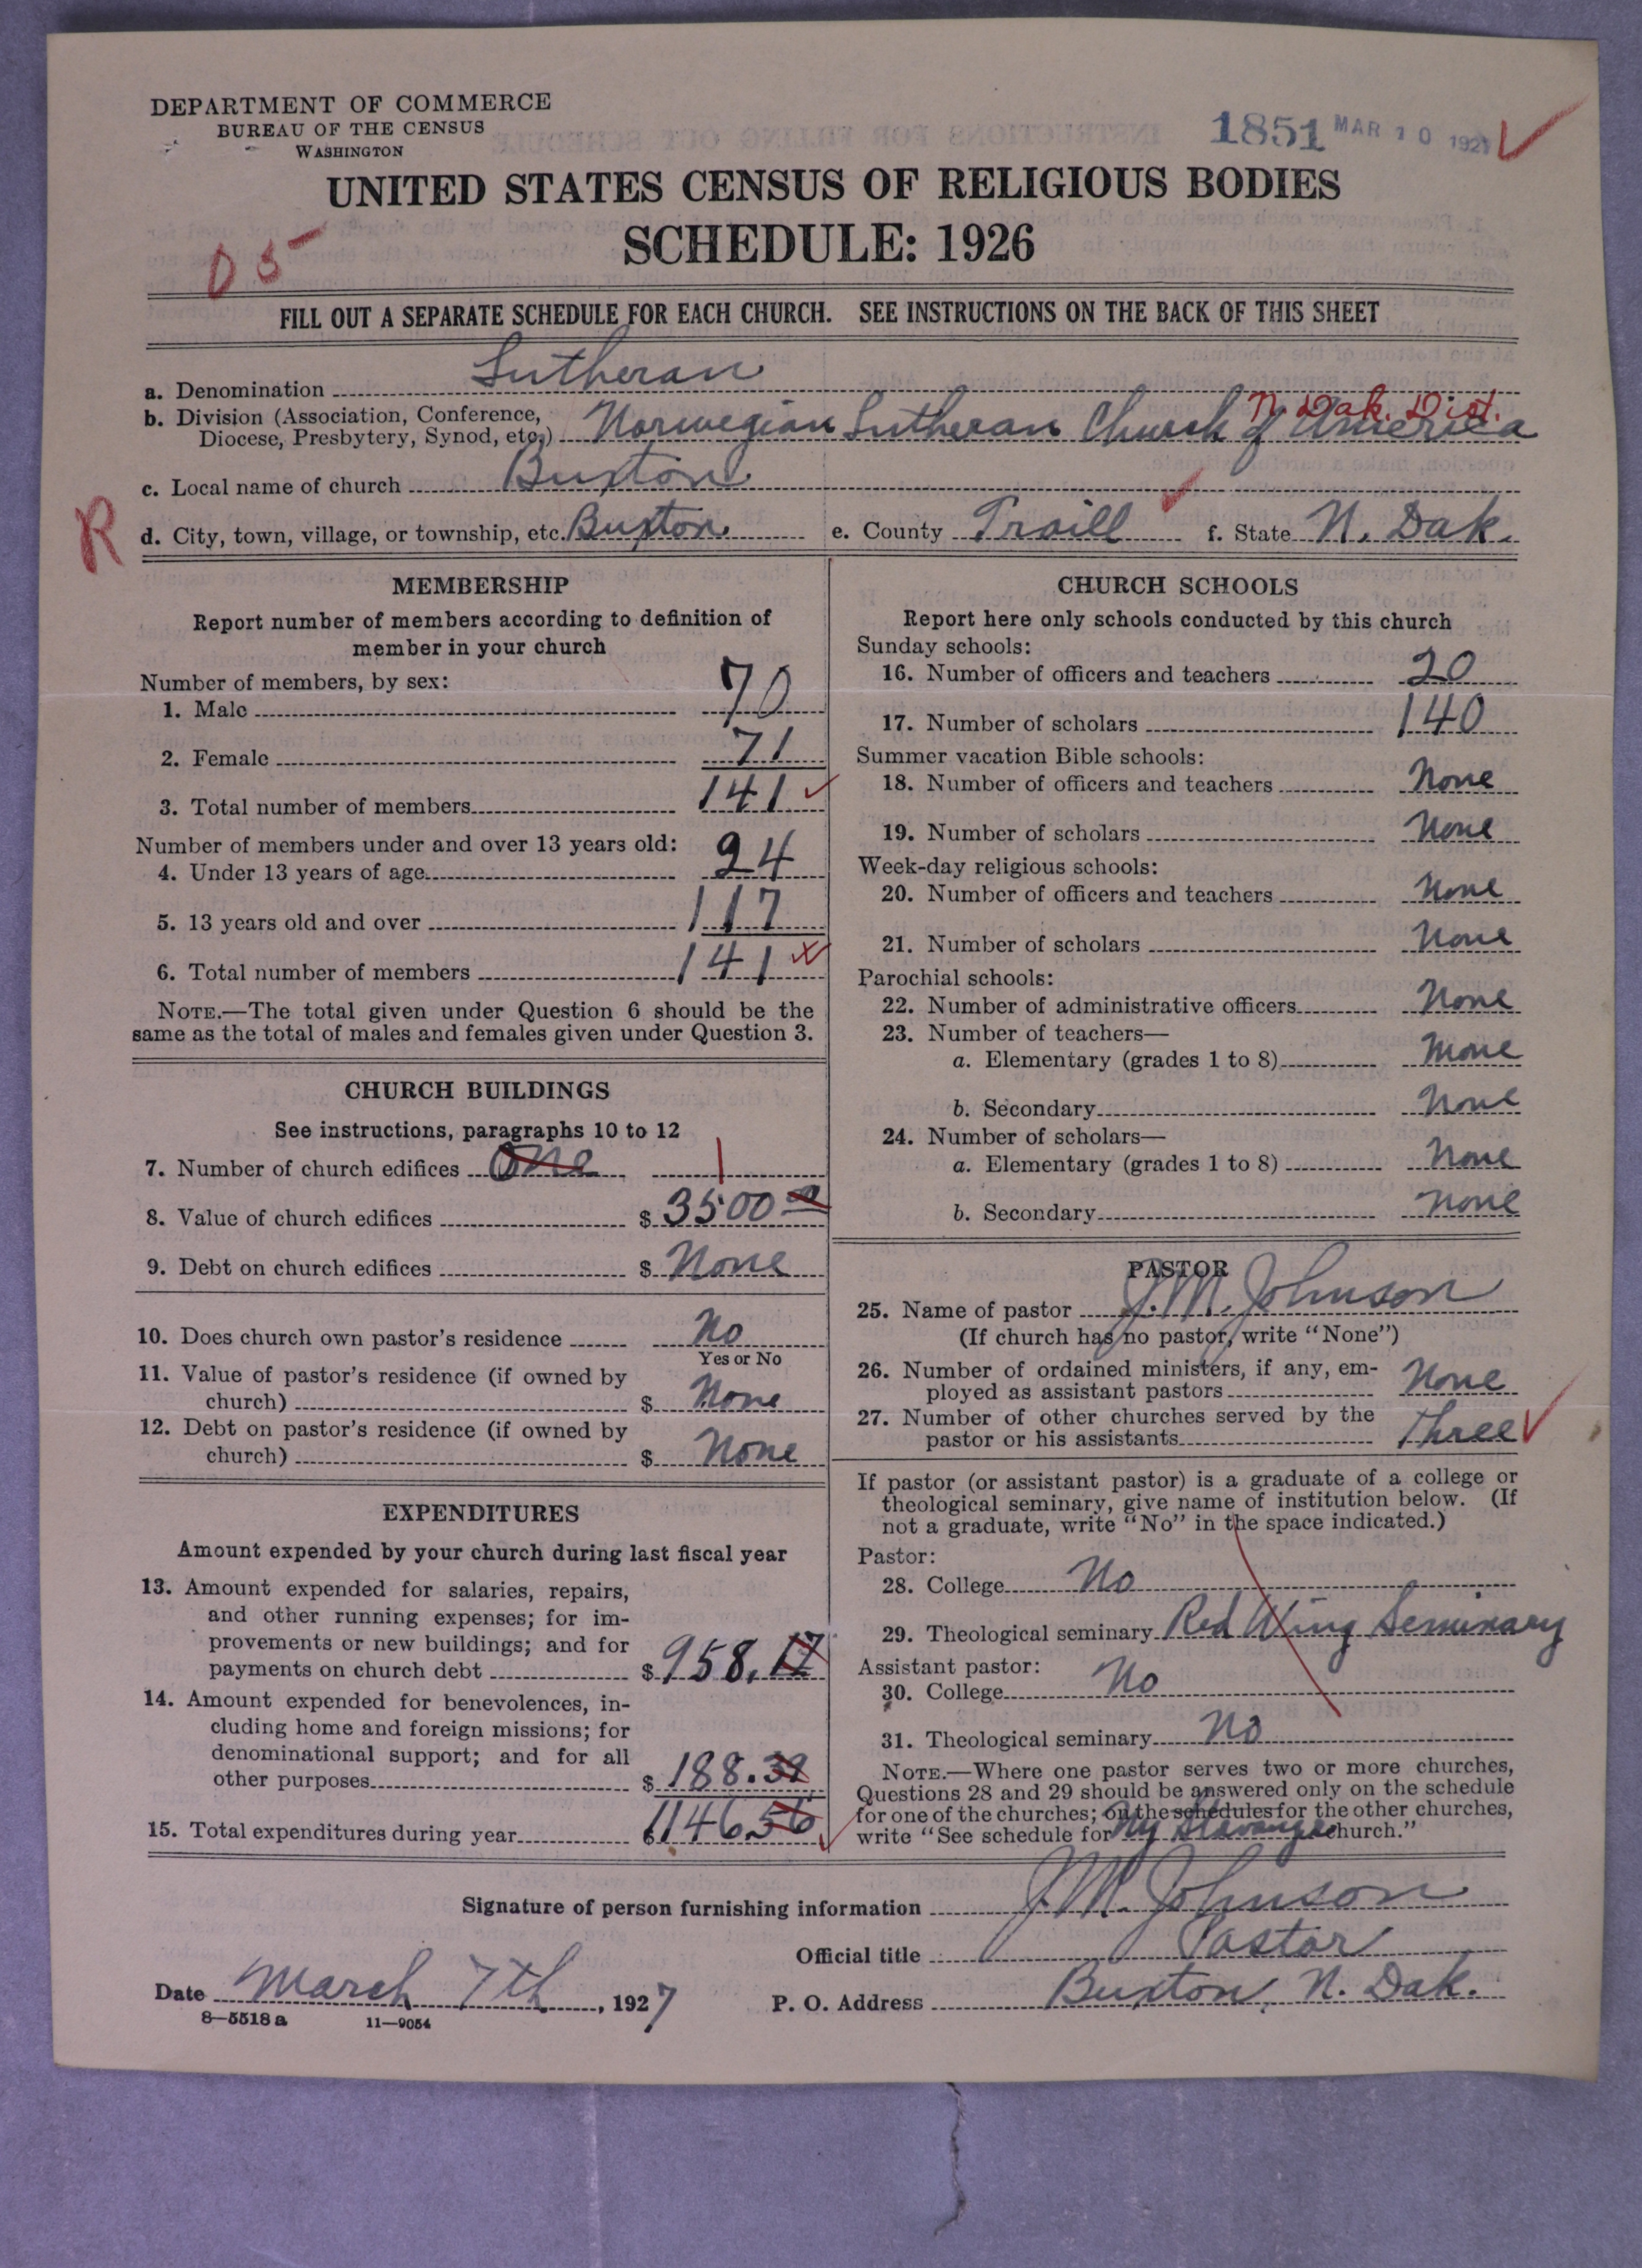 DEPARTMENT OF COMMERCE
BUREAU OF THE CENSUS
WASHINGTON
1851 MAR 10 1927
UNITED STATES CENSUS OF RELIGIOUS BODIES
SCHEDULE: 1926
DS
FILL OUT A SEPARATE SCHEDULE FOR EACH CHURCH. SEE INSTRUCTIONS ON THE BACK OF THIS SHEET
a. Denomination Lutheran
N. Dak. Dist.
b. Division (Association, Conference, Diocese, Presbytery, Synod, etc.) Norwegian Lutheran Church of America
c. Local name of church Buxton
R
d. City, town, village, or township, etc. Buxton e. County Traill f. State N. Dak.
MEMBERSHIP
Report number of members according to definition of
member in your church
Number of members, by sex:
1. Male 70
2. Female 71
3. Total number of members 141
Number of members under and over 13 years old:
4. Under 13 years of age 24
5. 13 years old and over 117
6. Total number of members 141
NOTE.—The total given under Question 6 should be the
same as the total of males and females given under Question 3.
CHURCH BUILDINGS
See instructions, paragraphs 10 to 12
7. Number of church edifices One 1
8. Value of church edifices $ 3500 00
9. Debt on church edifices $ None
10. Does church own pastor's residence No
Yes or No
11. Value of pastor's residence (if owned by
church) $ None
12. Debt on pastor's residence (if owned by
church) $ None
EXPENDITURES
Amount expended by your church during last fiscal year
13. Amount expended for salaries, repairs,
and other running expenses; for im-
provements or new buildings; and for
payments on church debt $ 958.17
14. Amount expended for benevolences, in-
cluding home and foreign missions; for
denominational support; and for all
other purposes $ 188.39
15. Total expenditures during year $ 1146 56
CHURCH SCHOOLS
Report here only schools conducted by this church
Sunday schools:
16. Number of officers and teachers 20
17. Number of scholars 140
Summer vacation Bible schools:
18. Number of officers and teachers None
19. Number of scholars None
Week-day religious schools:
20. Number of officers and teachers None
21. Number of scholars None
Parochial schools:
22. Number of administrative officers None
23. Number of teachers—
a. Elementary (grades 1 to 8) None
b. Secondary None
24. Number of scholars—
a. Elementary (grades 1 to 8) None
b. Secondary None
PASTOR
25. Name of pastor J. M. Johnson
(If church has no pastor, write "None")
26. Number of ordained ministers, if any, em-
ployed as assistant pastors None
27. Number of other churches served by the
pastor or his assistants three
If pastor (or assistant pastor) is a graduate of a college or
theological seminary, give name of institution below. (If
not a graduate, write "No" in the space indicated.)
Pastor:
28. College No
29. Theological seminary Red Wing Seminary
Assistant pastor:
30. College No
31. Theological seminary No
NOTE.—Where one pastor serves two or more churches,
Questions 28 and 29 should be answered only on the schedule
for one of the churches; on the schedules for the other churches,
write "See schedule for Ny Stavanger church."
Signature of person furnishing information J. M. Johnson
Official title Pastor
Date March 7th, 1927 P. O. Address Buxton, N. Dak.
8—5518 a 11—9054